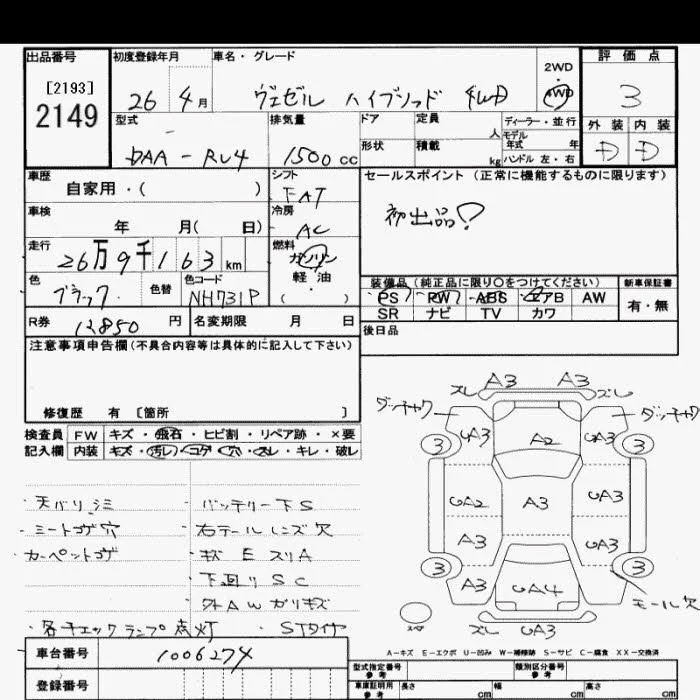 出品番号 初度登録年月 車名・グレード 2WD 評価点
[2193] 26年 4月 ヴェゼル ハイブリッド 4WD 4WD 3
2149 型式 排気量 ドア 定員 人 ディーラー・並行 外装 内装
DAA-RU4 1500cc 形状 積載 kg モデル年式 年 ハンドル 左・右 D D
車歴 シフト セールスポイント (正常に機能するものに限ります)
自家用・( ) FAT 初出品!
車検 冷房
年 月( 日) AC
走行 燃料
26万9千163km ガソリン
軽・油
( )
色 色替 色コード 装備品(純正品に限り○をつけてください) 新車保証書
ブラック NH731P PS PW ABS エアB AW 有・無
SR ナビ TV カワ
R券 12850円 名変期限 月 日 後日品
注意事項申告欄(不具合内容等は具体的に記入して下さい)
修復歴 有 [箇所 ]
検査員 FW キズ・飛石・ヒビ割・リペア跡・×要
記入欄 内装 キズ・汚レ・コゲ・穴・スレ・キレ・破レ
・天バリシミ ・バッテリー下S
・ミートコゲ穴 ・右テールレンズ欠
・カーペットコゲ ・キズ E スリA
・下廻りSC
・外AWガリキズ
・各チェックランプ点灯 ・STタイヤ
ズレ A3 A3 ズレ
ダッチャク ダッチャク
UA3 A2 UA3
3 3
UA2 A3 UA3
A3 UA3
3 3
A3 UA4 モール欠
ズレ UA3
A-キズ E-エクボ U-凹み W-補修跡 S-サビ C-腐食 XX-交換済
車台番号 1006274 型式指定番号 参考 類別区分番号 参考
登録番号 車庫証明用 参考 長さ cm 幅 cm 高さ cm